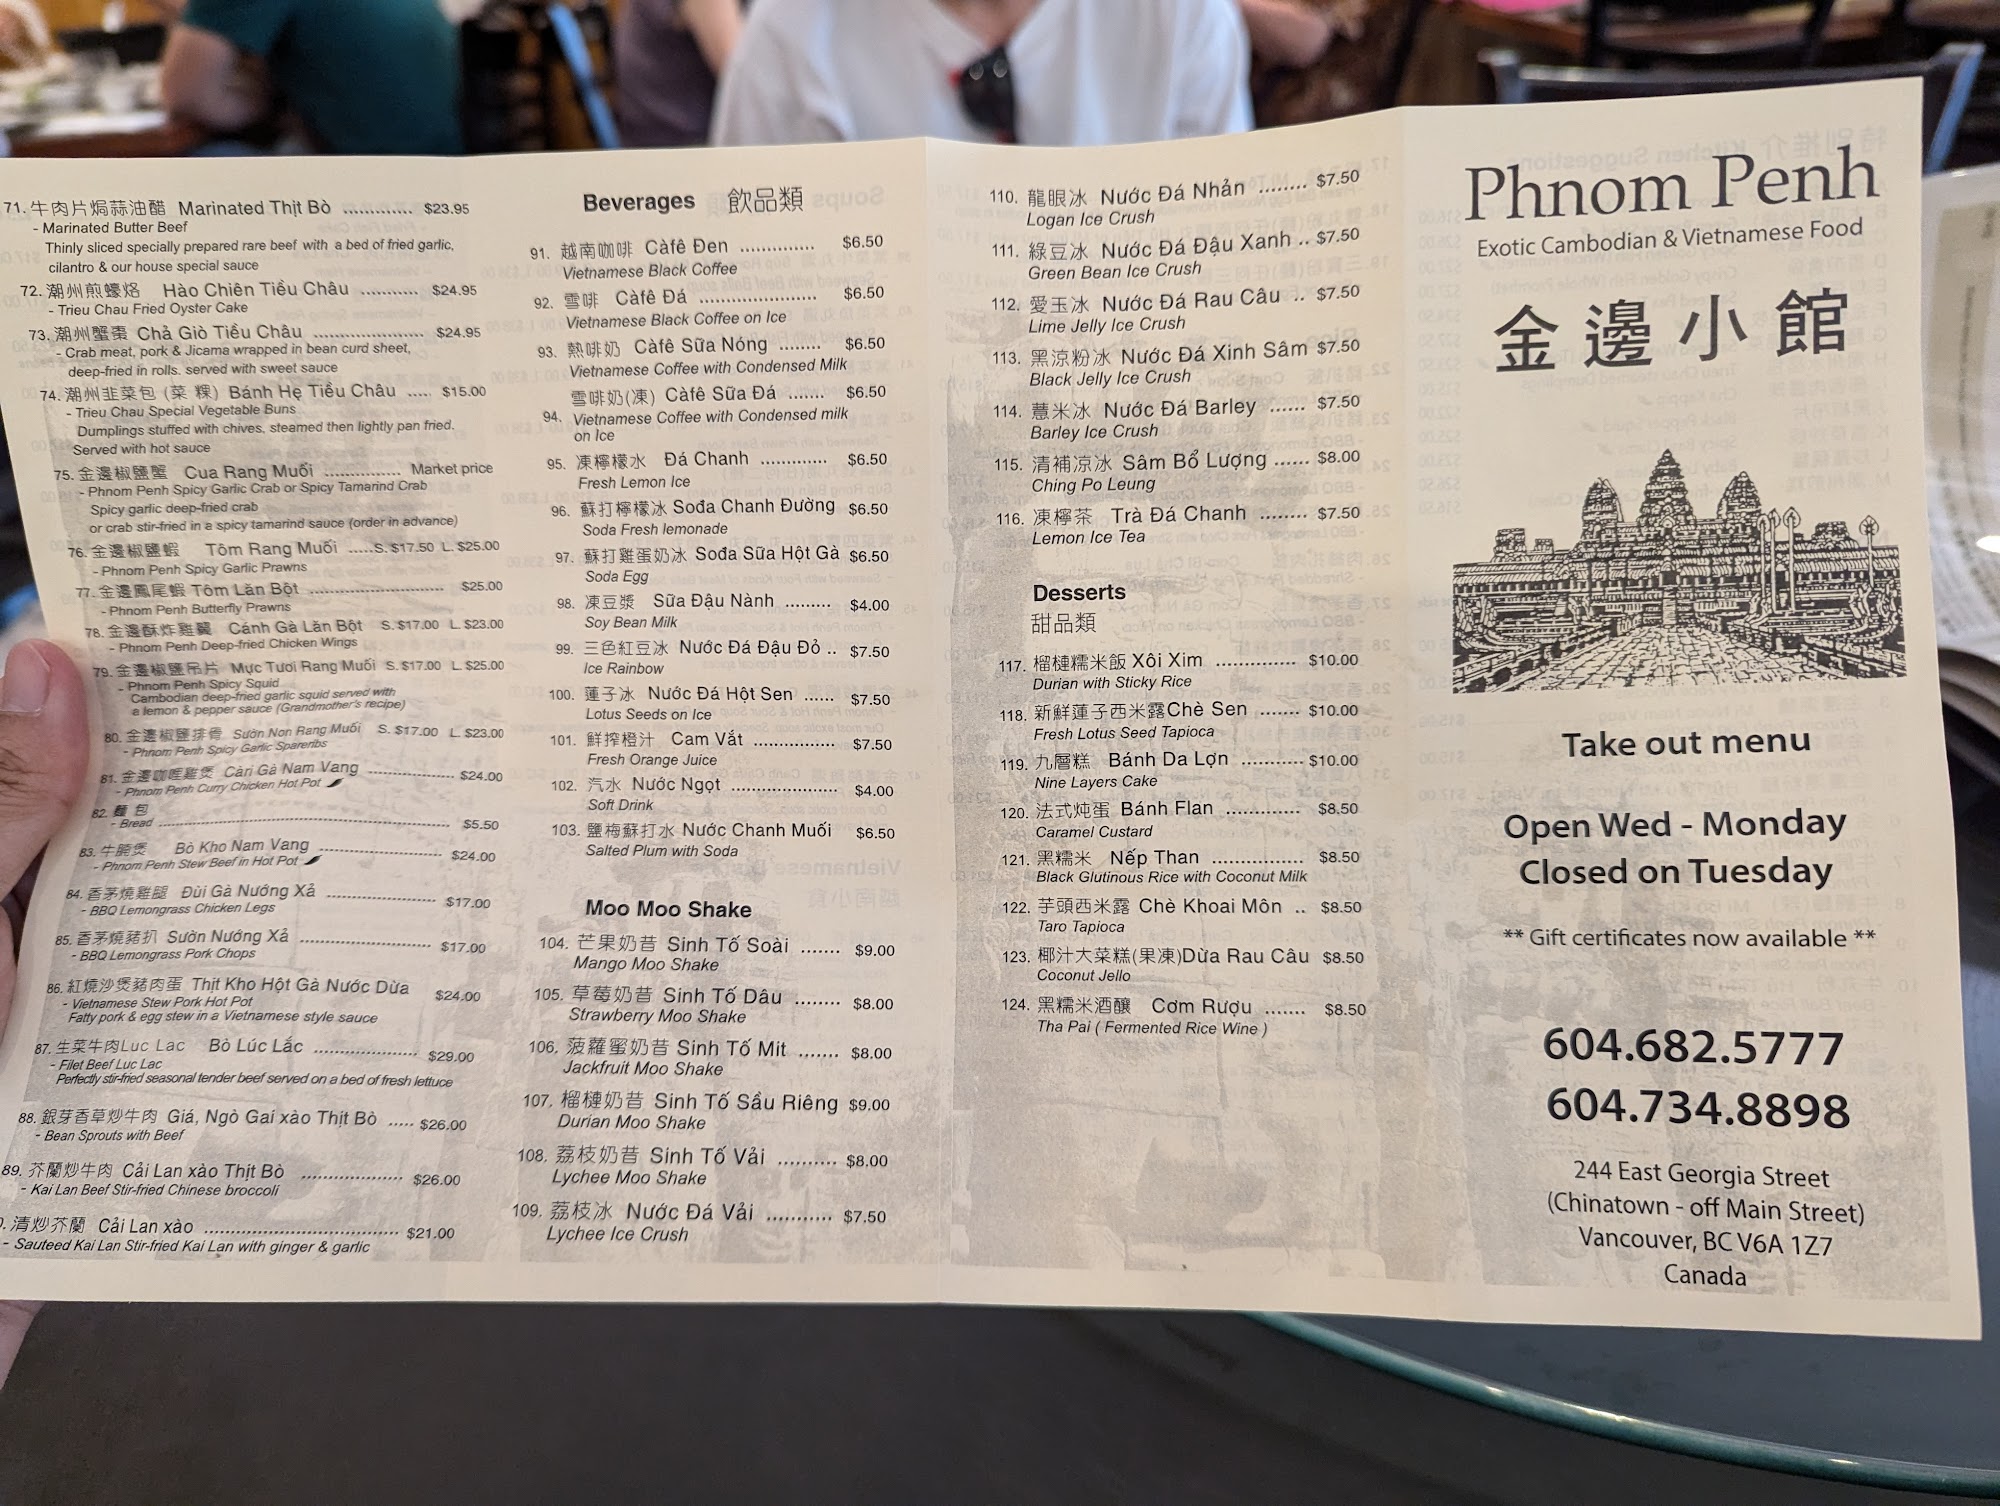 71. 牛肉片焗蒜油醋 Marinated Thịt Bò ............. $23.95
- Marinated Butter Beef
Thinly sliced specially prepared rare beef with a bed of fried garlic,
cilantro & our house special sauce
72. 潮州煎蠔烙 Hào Chiên Tiều Châu ........... $24.95
- Trieu Chau Fried Oyster Cake
73. 潮州蟹棗 Chả Giò Tiều Châu ..................... $24.95
- Crab meat, pork & Jicama wrapped in bean curd sheet,
deep-fried in rolls. served with sweet sauce
74. 潮州韭菜包 (菜 粿) Bánh Hẹ Tiều Châu ..... $15.00
- Trieu Chau Special Vegetable Buns
Dumplings stuffed with chives, steamed then lightly pan fried.
Served with hot sauce
75. 金邊椒鹽蟹 Cua Rang Muối .............. Market price
- Phnom Penh Spicy Garlic Crab or Spicy Tamarind Crab
Spicy garlic deep-fried crab
or crab stir-fried in a spicy tamarind sauce (order in advance)
76. 金邊椒鹽蝦 Tôm Rang Muối .....S. $17.50 L. $25.00
- Phnom Penh Spicy Garlic Prawns
77. 金邊鳳尾蝦 Tôm Lăn Bột ........................... $25.00
- Phnom Penh Butterfly Prawns
78. 金邊酥炸雞翼 Cánh Gà Lăn Bột S. $17.00 L. $23.00
- Phnom Penh Deep-fried Chicken Wings
79. 金邊椒鹽吊片 Mực Tươi Rang Muối S. $17.00 L. $25.00
- Phnom Penh Spicy Squid
Cambodian deep-fried garlic squid served with
a lemon & pepper sauce (Grandmother's recipe)
80. 金邊椒鹽排骨 Sườn Non Rang Muối S. $17.00 L. $23.00
- Phnom Penh Spicy Garlic Spareribs
81. 金邊咖喱雞煲 Càri Gà Nam Vang ................ $24.00
- Phnom Penh Curry Chicken Hot Pot
82. 麵 包
- Bread ............................................. $5.50
83. 牛腩煲 Bò Kho Nam Vang ..................... $24.00
- Phnom Penh Stew Beef in Hot Pot
84. 香茅燒雞腿 Đùi Gà Nướng Xả .................... $17.00
- BBQ Lemongrass Chicken Legs
85. 香茅燒豬扒 Sườn Nướng Xả ..................... $17.00
- BBQ Lemongrass Pork Chops
86. 紅燒沙煲豬肉蛋 Thịt Kho Hột Gà Nước Dừa $24.00
- Vietnamese Stew Pork Hot Pot
Fatty pork & egg stew in a Vietnamese style sauce
87. 生菜牛肉Luc Lac Bò Lúc Lắc .................. $29.00
- Filet Beef Luc Lac
Perfectly stir-fried seasonal tender beef served on a bed of fresh lettuce
88. 銀芽香草炒牛肉 Giá, Ngò Gai xào Thịt Bò ..... $26.00
- Bean Sprouts with Beef
89. 芥蘭炒牛肉 Cải Lan xào Thịt Bò .................. $26.00
- Kai Lan Beef Stir-fried Chinese broccoli
0. 清炒芥蘭 Cải Lan xào ................................... $21.00
- Sauteed Kai Lan Stir-fried Kai Lan with ginger & garlic
Beverages 飲品類
91. 越南咖啡 Càfê Đen .............. $6.50
Vietnamese Black Coffee
92. 雪啡 Càfê Đá ...................... $6.50
Vietnamese Black Coffee on Ice
93. 熱啡奶 Càfê Sữa Nóng ........ $6.50
Vietnamese Coffee with Condensed Milk
雪啡奶(凍) Càfê Sữa Đá ....... $6.50
94. Vietnamese Coffee with Condensed milk
on Ice
95. 凍檸檬水 Đá Chanh ............. $6.50
Fresh Lemon Ice
96. 蘇打檸檬冰 Sođa Chanh Đường $6.50
Soda Fresh lemonade
97. 蘇打雞蛋奶冰 Sođa Sữa Hột Gà $6.50
Soda Egg
98. 凍豆漿 Sữa Đậu Nành ......... $4.00
Soy Bean Milk
99. 三色紅豆冰 Nước Đá Đậu Đỏ .. $7.50
Ice Rainbow
100. 蓮子冰 Nước Đá Hột Sen ...... $7.50
Lotus Seeds on Ice
101. 鮮搾橙汁 Cam Vắt ................ $7.50
Fresh Orange Juice
102. 汽水 Nước Ngọt ..................... $4.00
Soft Drink
103. 鹽梅蘇打水 Nước Chanh Muối $6.50
Salted Plum with Soda
Moo Moo Shake
104. 芒果奶昔 Sinh Tố Soài ....... $9.00
Mango Moo Shake
105. 草莓奶昔 Sinh Tố Dâu ........ $8.00
Strawberry Moo Shake
106. 菠蘿蜜奶昔 Sinh Tố Mít ....... $8.00
Jackfruit Moo Shake
107. 榴槤奶昔 Sinh Tố Sầu Riêng $9.00
Durian Moo Shake
108. 荔枝奶昔 Sinh Tố Vải .......... $8.00
Lychee Moo Shake
109. 荔枝冰 Nước Đá Vải ........... $7.50
Lychee Ice Crush
110. 龍眼冰 Nước Đá Nhản ........ $7.50
Logan Ice Crush
111. 綠豆冰 Nước Đá Đậu Xanh .. $7.50
Green Bean Ice Crush
112. 愛玉冰 Nước Đá Rau Câu .. $7.50
Lime Jelly Ice Crush
113. 黑涼粉冰 Nước Đá Xinh Sâm $7.50
Black Jelly Ice Crush
114. 薏米冰 Nước Đá Barley ...... $7.50
Barley Ice Crush
115. 清補涼冰 Sâm Bổ Lượng ...... $8.00
Ching Po Leung
116. 凍檸茶 Trà Đá Chanh ........ $7.50
Lemon Ice Tea
Desserts
甜品類
117. 榴槤糯米飯 Xôi Xim .............. $10.00
Durian with Sticky Rice
118. 新鮮蓮子西米露Chè Sen ....... $10.00
Fresh Lotus Seed Tapioca
119. 九層糕 Bánh Da Lợn ........... $10.00
Nine Layers Cake
120. 法式炖蛋 Bánh Flan ............. $8.50
Caramel Custard
121. 黑糯米 Nếp Than ................ $8.50
Black Glutinous Rice with Coconut Milk
122. 芋頭西米露 Chè Khoai Môn .. $8.50
Taro Tapioca
123. 椰汁大菜糕(果凍)Dừa Rau Câu $8.50
Coconut Jello
124. 黑糯米酒釀 Cơm Rượu ....... $8.50
Tha Pai ( Fermented Rice Wine )
Phnom Penh
Exotic Cambodian & Vietnamese Food
金邊小館
Take out menu
Open Wed - Monday
Closed on Tuesday
** Gift certificates now available **
604.682.5777
604.734.8898
244 East Georgia Street
(Chinatown - off Main Street)
Vancouver, BC V6A 1Z7
Canada